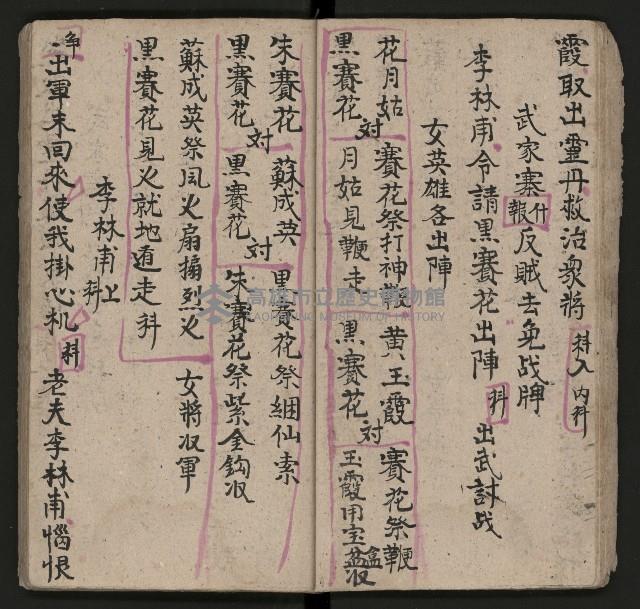 霞取出靈丹救治衆將 科入內科
武家寨 什報 反賊去免战牌
李林甫令請黑賽花出陣 科 出武討战
女英雄各出陣
花月姑 対 賽花祭打神鞭 黃玉霞 対 賽花祭鞭
黑賽花 月姑見鞭走 黑賽花 玉霞用宝盒収
朱賽花 対 蘇成英 対 黑賽花祭綑仙索
黑賽花 黑賽花 朱賽花祭紫金鈎収
蘇成英祭風火扇搧烈火 女將収軍
黑賽花見火就地遁走 科
李林甫上 科
争 出軍未回來使我掛心机 科 老夫李林甫惱恨
高雄市立歷史博物館
KAOHSIUNG MUSEUM OF HISTORY